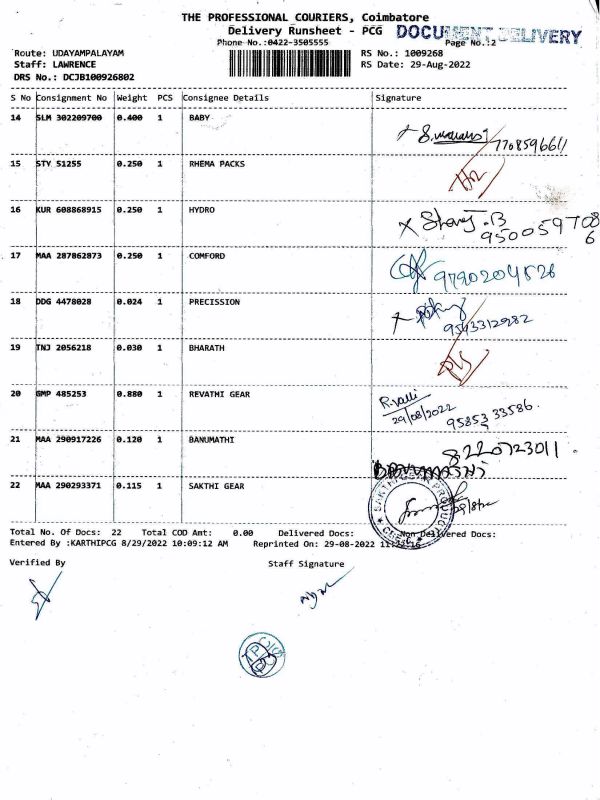 THE PROFESSIONAL COURIERS, Coimbatore
Delivery Runsheet - PCG
DOCUMENT DELIVERY
Phone No.:0422-3505555
Page No.:2
Route: UDAYAMPALAYAM
RS No.: 1009268
Staff: LAWRENCE
RS Date: 29-Aug-2022
DRS No.: DCJB100926802
S No Consignment No Weight PCS Consignee Details Signature
14 SLM 302209700 0.400 1 BABY
7708596611
15 STY 51255 0.250 1 RHEMA PACKS
16 KUR 608868915 0.250 1 HYDRO
9500597086
17 MAA 287862873 0.250 1 COMFORD
9790204526
18 DDG 4478028 0.024 1 PRECISSION
9543312982
19 TNJ 2056218 0.030 1 BHARATH
20 GMP 485253 0.880 1 REVATHI GEAR
R.valli
29/08/2022
95853 33586.
21 MAA 290917226 0.120 1 BANUMATHI
8220723011.
22 MAA 290293371 0.115 1 SAKTHI GEAR
Total No. Of Docs: 22 Total COD Amt: 0.00 Delivered Docs: Non Delivered Docs:
Entered By :KARTHIPCG 8/29/2022 10:09:12 AM Reprinted On: 29-08-2022
Verified By
Staff Signature